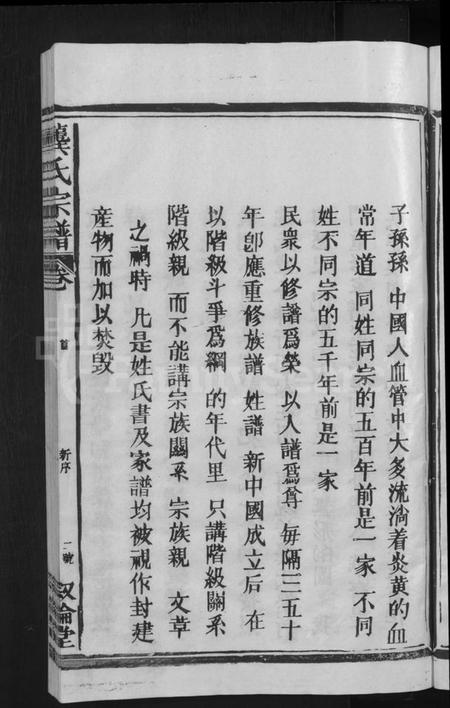 子孫孫 中國人血管中大多流淌着炎黄的血
常年道 同姓同宗的五百年前是一家 不同
姓不同宗的五千年前是一家
民衆以修譜爲榮 以人譜爲尊 每隔三五十
年卽應重修族譜 姓譜 新中國成立后 在
以階級斗爭爲綱 的年代里 只講階級關系
階級親 而不能講宗族關系 宗族親 文革
之禍時 凡是姓氏書及家譜均被視作封建
産物而加以焚毁
龔氏宗譜 卷
首
新序
二號
叙倫堂